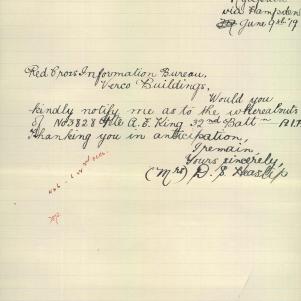 via Hampden
June 9th '19
Red Cross Information Bureau,
Verco Buildings,
Would you
kindly notify me as to the whereabouts
of No 3828 Pte A. E. King 32nd Batt — A.I.F.
Thanking you in anticipation,
I remain,
Yours sincerely,
(Mrs) D. S. Heaslip